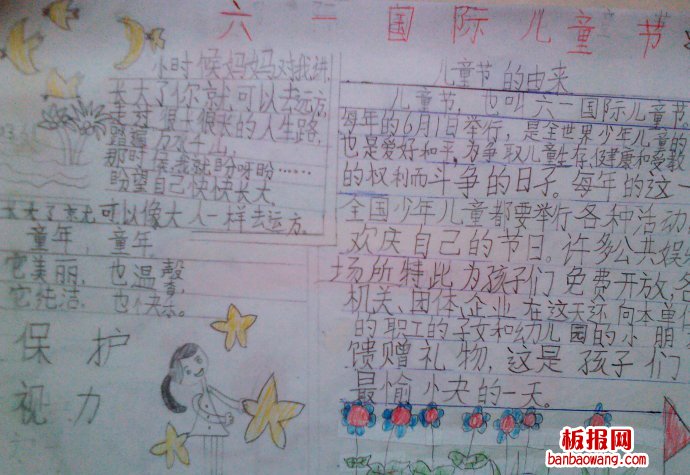 六一国际儿童节
小时候妈妈对我讲
长大了你就可以去远方
走过很长很长的人生路
踏遍万水千山
那时候我就盼呀盼……
盼望自己快快长大
长大了就可以像大人一样去远方
童年,童年,
它美丽,也温馨
它纯洁,也快乐。
保护
视力
儿童节的由来
儿童节,也叫六一国际儿童节
每年的6月1日举行,是全世界少年儿童的
也是爱好和平,为争取儿童生存、健康和受教
的权利而斗争的日子。每年的这一
全国少年儿童都要举行各种活动
欢庆自己的节日。许多公共娱
场所特此为孩子们免费开放,各
机关、团体、企业在这天还向本单位
的职工的子女和幼儿园的小朋
馈赠礼物,这是孩子们
最愉小夬的一天。
板报网
banbaowang.com